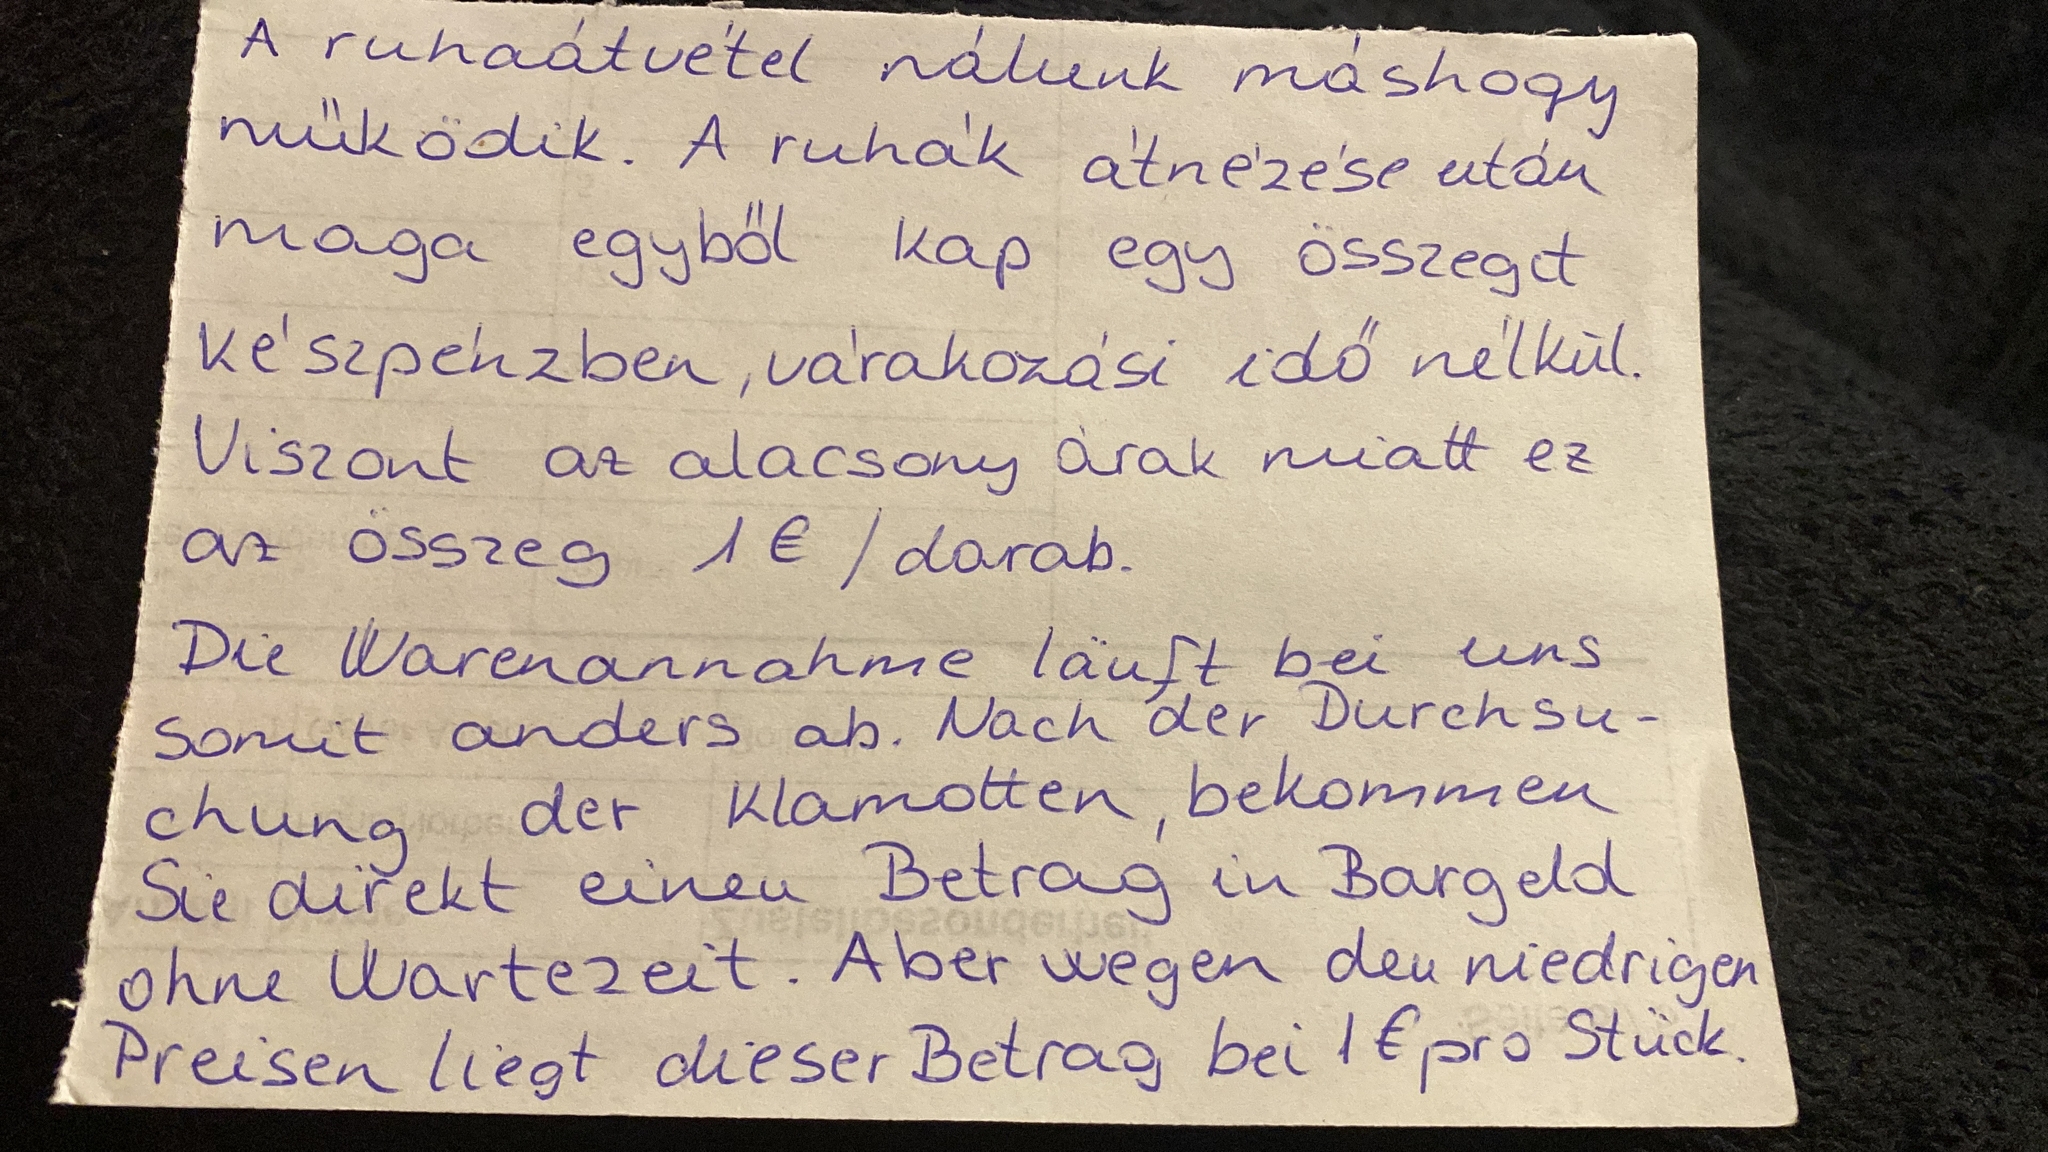 A ruhaátvétel nálunk máshogy
működik. A ruhák átnézése után
maga egyből kap egy összeget
készpénzben, várakozási idő nélkül.
Viszont az alacsony árak miatt ez
az összeg 1 € / darab.
Die Warenannahme läuft bei uns
somit anders ab. Nach der Durchsu-
chung der Klamotten, bekommen
Sie direkt einen Betrag in Bargeld
ohne Wartezeit. Aber wegen den niedrigen
Preisen liegt dieser Betrag bei 1 € pro Stück.